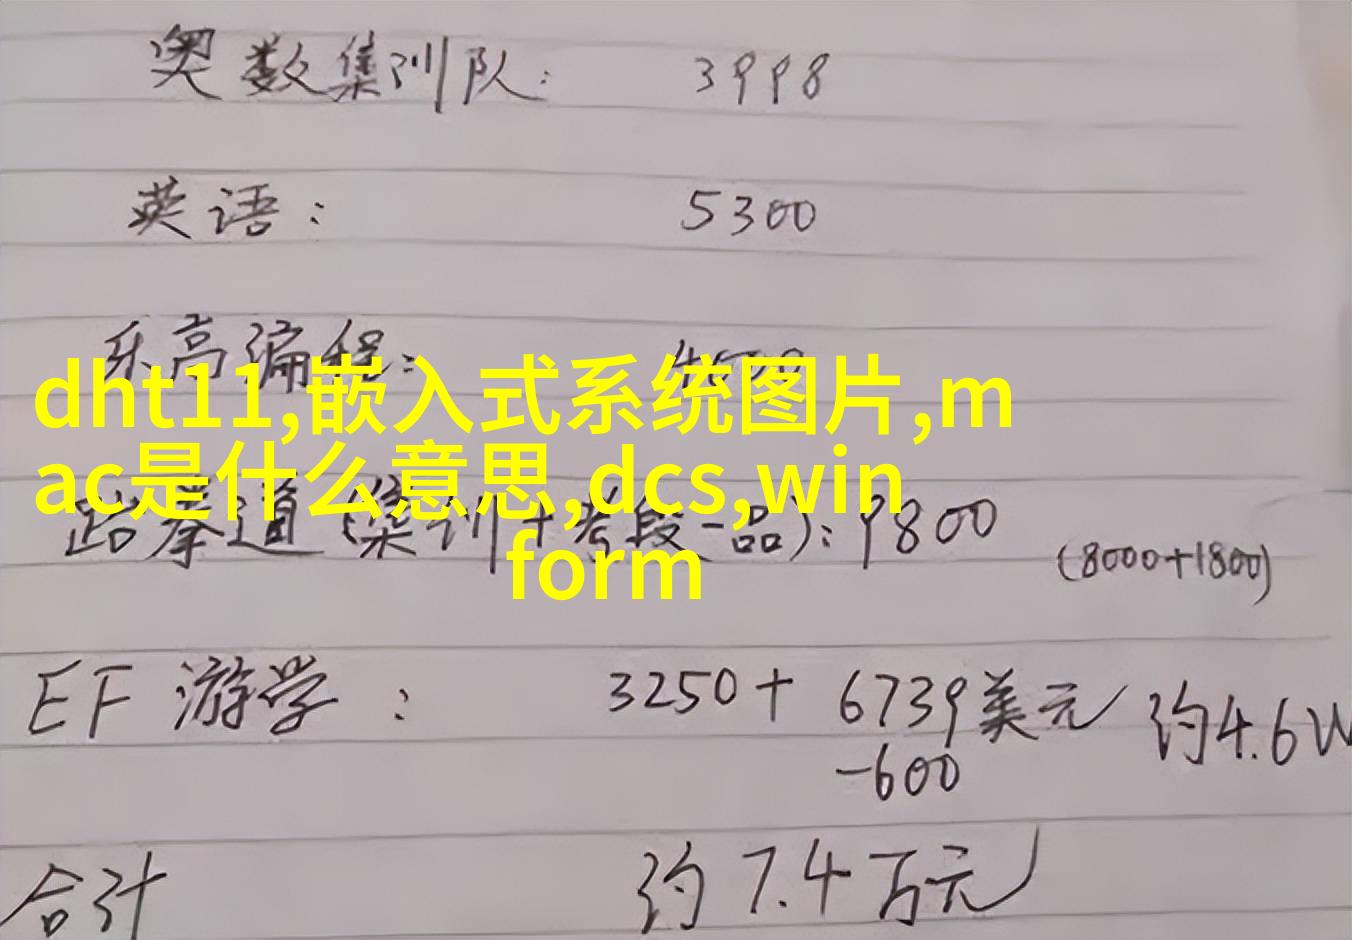 奥数集训队: 3998
英语: 5300
乐高编程:
dht11,嵌入式系统图片,m
ac是什么意思,dcs,win
form
跆拳道(集训+考段一品):9800 (8000+1800)
EF 游学: 3250+6739美元 约4.6W
-600
合计 约7.4万元